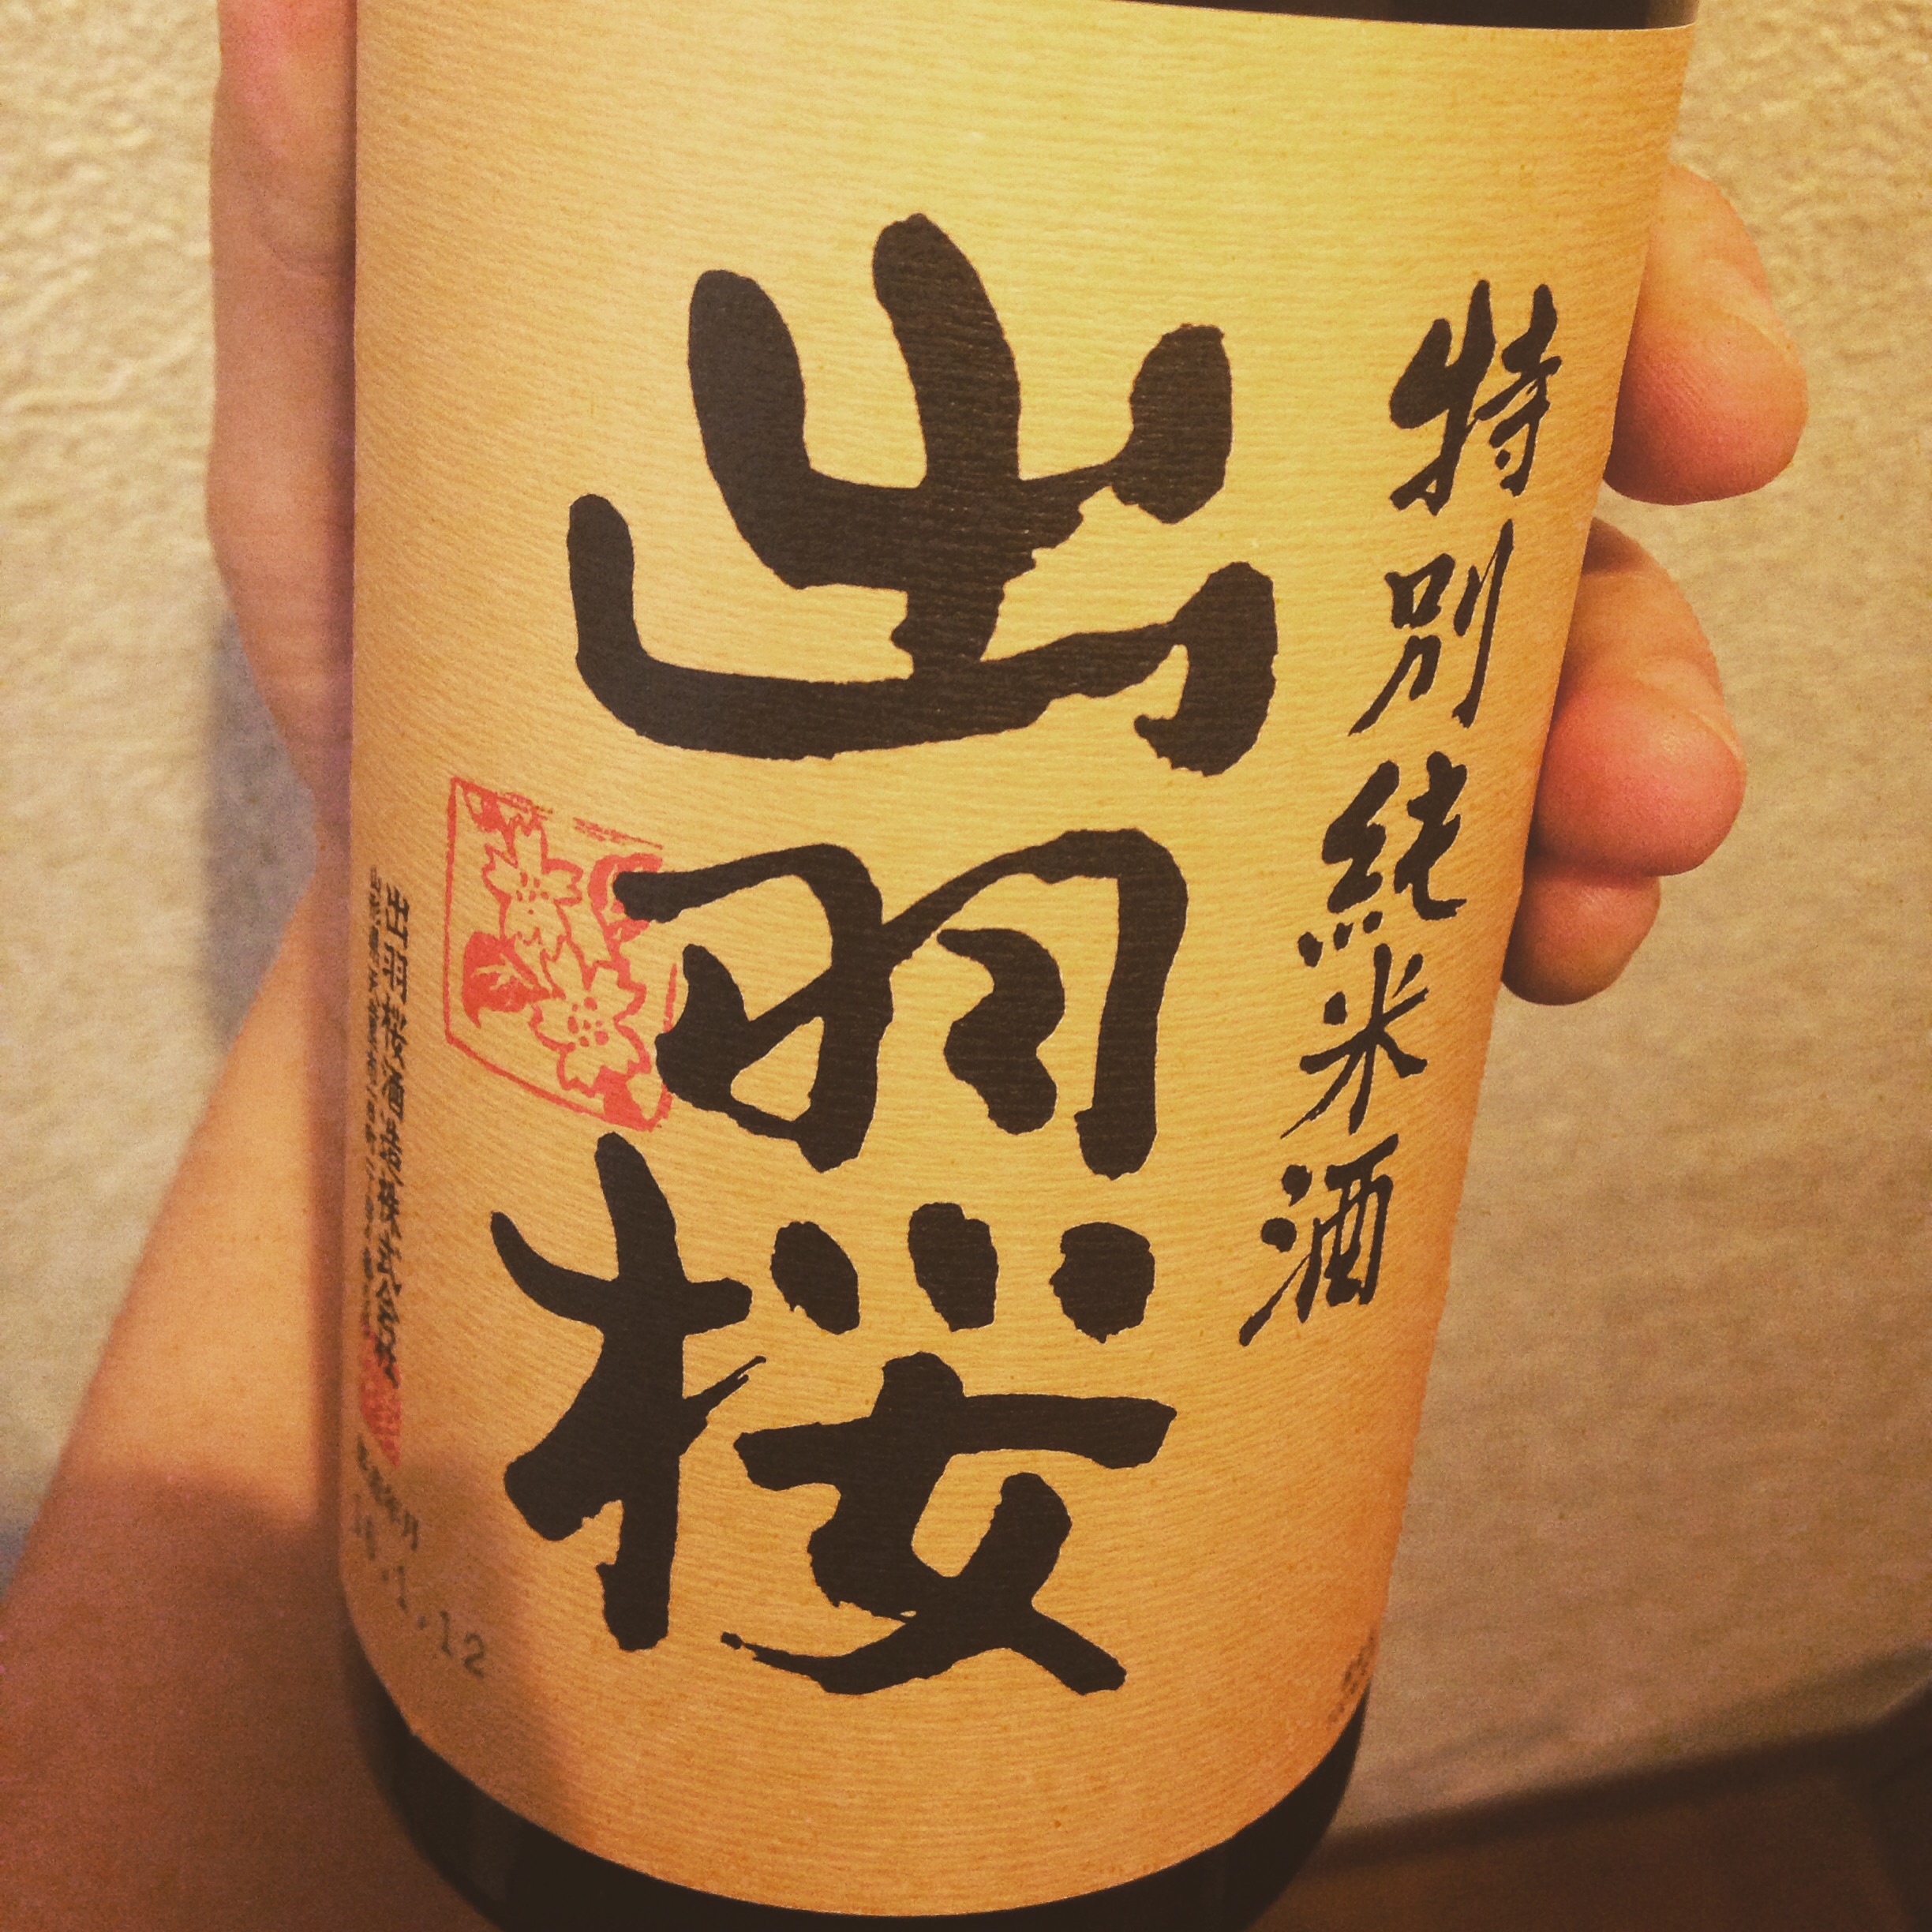 特別純米酒
出羽桜
出羽桜酒造株式会社
製造年月